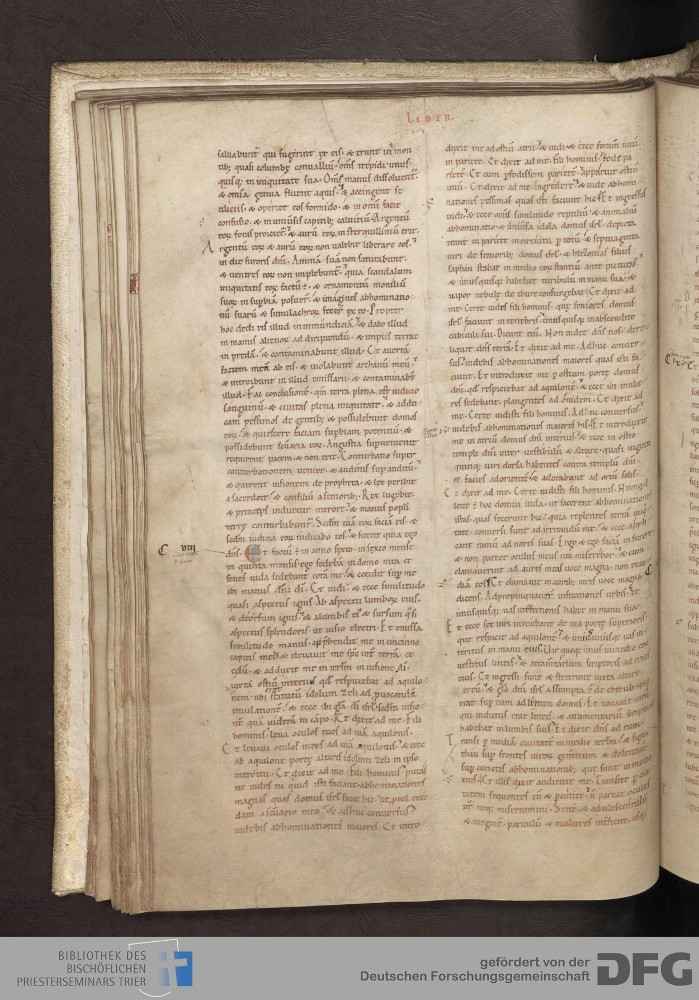 LIBER
saluabunt̄ qui fugerint ex eis · & erunt in mon
tib; quasi columbę conualliū · om̄s trepidi · unus
quisq; in iniquitate sua · Om̄s manus dissoluent̄ ·
& om̄ia genua fluent aquis · & accingent se
ciliciis · & operiet eos formido · & in om̄i facie
confusio · & in uniuersis capitib; caluitiū · Argentū
eoꝝ foras proicietꝰ · & aurū eoꝝ in sterquiliniū erit ·
Argentū eoꝝ & aurū eoꝝ non ualebit liberare eos
in die furoris dn̄i · Animā suā non saturabunt ·
& uentres eoꝝ non implebunt̄ · quia scandalum
iniquitatis eoꝝ factū ē · & ornamentū monilium
suoꝝ in supbiā posuer̄ · & imagines abhominatio
nū suarū & simulachroꝝ fecer̄ ex eo · Propter
hoc dedi eis illud in inmundiciā · & dabo illud
in manus alienoꝝ ad diripiendū · & impiis terrae
in predā · & contaminabunt illud · Et auertā
faciem meā ab eis · & uiolabunt archanū meū ·
& introibunt in illud emissarii · & contaminabt̄
illud · Fac conclusionē · qm̄ terra plena est iudicio
sanguinū · & ciuitas plena iniquitate · & addu
cam pessimos de gentib; · & possidebunt domos
eoꝝ · & quiescere faciam supbiam potentiū · &
possidebunt sc̄uaria eoꝝ · Angustia supueniente
requirent pacem · & non erit · Conturbatio super
conturbationem ueniet · & auditus sup auditū ·
& querent uisionem de propheta · & lex peribit
a sacerdote · & consiliū a seniorib; · Rex lugebit ·
& princeps induetur merore · & manus popli
terrę conturbabunt̄ · Scd̄m uiā eoꝝ faciā eis · &
scd̄m iudicia eoꝝ iudicabo eos · & scient quia ego
C viii
dn̄s · Et factū ē in anno sexto · in sexto mense
in quinta mensis · ego sedebā in domo mea · et
senes iuda sedebant corā me · & cecidit sup me
ibi manus dn̄i dī · Et uidi · & ecce similitudo
quasi aspectus ignis · Ab aspectu lumboꝝ eius ·
& deorsum ignis · & a lumbis ei' & sursum q̄si
aspectus splendoris · ut uisio electri · Et emissa
similitudo manus · apphendit me in cincinno
capitis mei · & eleuauit me sp̄c int̄ terrā · et
cęlū · & adduxit me in ierlm̄ in uisione dī ·
iuxta ostiū interius qd̄ respiciebat ad aquilo
nem · ubi erat statutū idolum zeli ad puocandā
emulationē · & ecce ibi gl̄a dī isrl̄ · scd̄m uisio
nē quā uiderā in cāpo · Et dixit ad me · Fili
hominis · leua oculos tuos ad uiā aquilonis ·
Et leuaui oculos meos ad uiā aquilonis · & ecce
ab aquilone portę altaris idolum zeli in ipso
introitu · Et dixit ad me · fili hominis putas
ne uides tu quid isti faciant · abhominationes
magnas quas domus isrl̄ facit hic · ut pcul rece
dam a sc̄uario meo · & adhuc conuersus
uidebis abhominationes maiores · Et intro
duxit me ad ostiū atrii · & uidi · & ecce foram̄ unū
in pariete · Et dixit ad me · fili hominis · fode pa
rietē · Et cum pfodissem parietē · apparuit ostiū
unū · Et dixit ad me · Ingredere · & uide abhomi
nationes pessimas quas isti faciunt hic · Et ingressus
uidi · & ecce om̄is similitudo reptiliū · & animaliū
abhominatio · & uniusa idola domus isrl̄ · depicta
erant in pariete in circuitu p totū · & septuaginta
uiri de seniorib; domus isrl̄ · & hiezonias filius
saphan stabat in medio eoꝝ stantiū ante picturas ·
& unusquisq; habebat turibulū in manu sua · &
uapor nebulę de thure consurgebat · Et dixit ad
me · Certe uides fili hominis · quę seniores domus
isrl̄ faciunt in tenebris · unusquisq; in abscondito
cubiculi sui · Dicunt enī · Non uidet dn̄s nos · dere
liquit dn̄s terrā · Et dixit ad me · Adhuc conuer
sus · uidebis abhominationes maiores quas isti fa
ciunt · Et introduxit me p ostium portę domus
dn̄i · qd̄ respiciebat ad aquilonē · & ecce ibi mulie
res sedebant · plangentes adonidem · Et dixit ad
me · Certe uidisti fili hominis · Adhuc conuersus
uidebis abhominationes maiores his · Et introduxit
me in atriū domus dn̄i interius · & ecce in ostio
templi dn̄i inter uestibulū & altare · quasi uiginti
quinq; uiri dorsa habentes contra templū dn̄i ·
& facies ad orientē · & adorabant ad ortū solis ·
Et dixit ad me · Certe uidisti fili hominis · Nunquid
leue ē hoc domui iuda · ut facerent abhominationes
istas quas fecerunt hic · quia replentes terrā iniqui
tate · conuersi sunt ad irritandū me · & ecce appli
cant ramū ad nares suas · Ergo & ego faciā in furore ·
& non parcet oculus meus nec miserebor · & cum
clamauerint ad aures meas uoce magna · non exau
diā eos · Et clamauit in aurib; meis uoce magna
dicens · Adpropinquauer̄ uisitationes urbis · et
unusquisq; uas intfectionis habet in manu sua ·
Et ecce sex uiri ueniebant de uia portę superioris ·
quę respicit ad aquilonē · & uniuscuiusq; uas in
teritus in manu eius · Vir quoq; unus in medio eoꝝ
uestitus lineis · & atramentarium scriptoris ad renes
eius · Et ingressi sunt & steterunt iuxta altare
ereū · & gl̄a dn̄i isrl̄ assumpta ē de cherub · quę
erat sup eum ad limen domus · Et uocauit uirū
qui indutus erat lineis · & atramentariū scriptoris
habebat in lumbis suis · Et dixit dn̄s ad eum ·
Transi p mediā ciuitatē in medio ierlm̄ · & signa
thau sup frontes uiroꝝ gementium & dolentium
sup cunctis abhominationib; · quę fiunt in medio
eius · Et illis dixit audiente me · Transite p ciui
tatem sequentes eū & pcutite · n̄ parcat oculus
ur̄ · neq; misereamini · Senē · & adulescentulū
& uirginē · paruulū & mulieres intficite · usq;
BIBLIOTHEK DES
BISCHÖFLICHEN
PRIESTERSEMINARS TRIER
gefördert von der
Deutschen Forschungsgemeinschaft
DFG